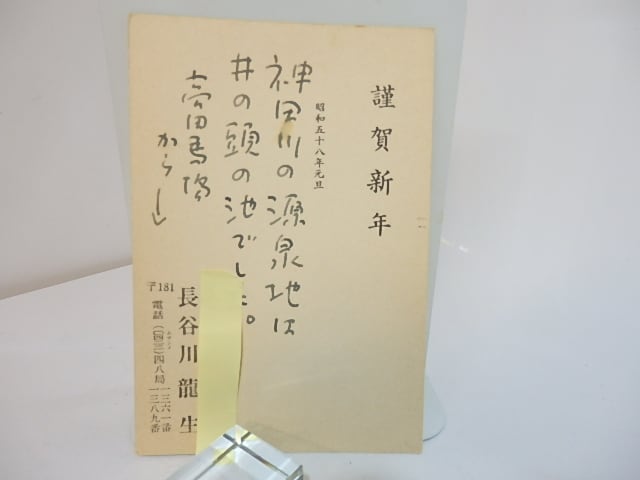 謹賀新年
昭和五十八年元旦
神田川の源泉地は
井の頭の池でした。
高田馬場
から
〒181
長谷川龍生
電話(〇四二二)四八局一三六一番
一三八九番